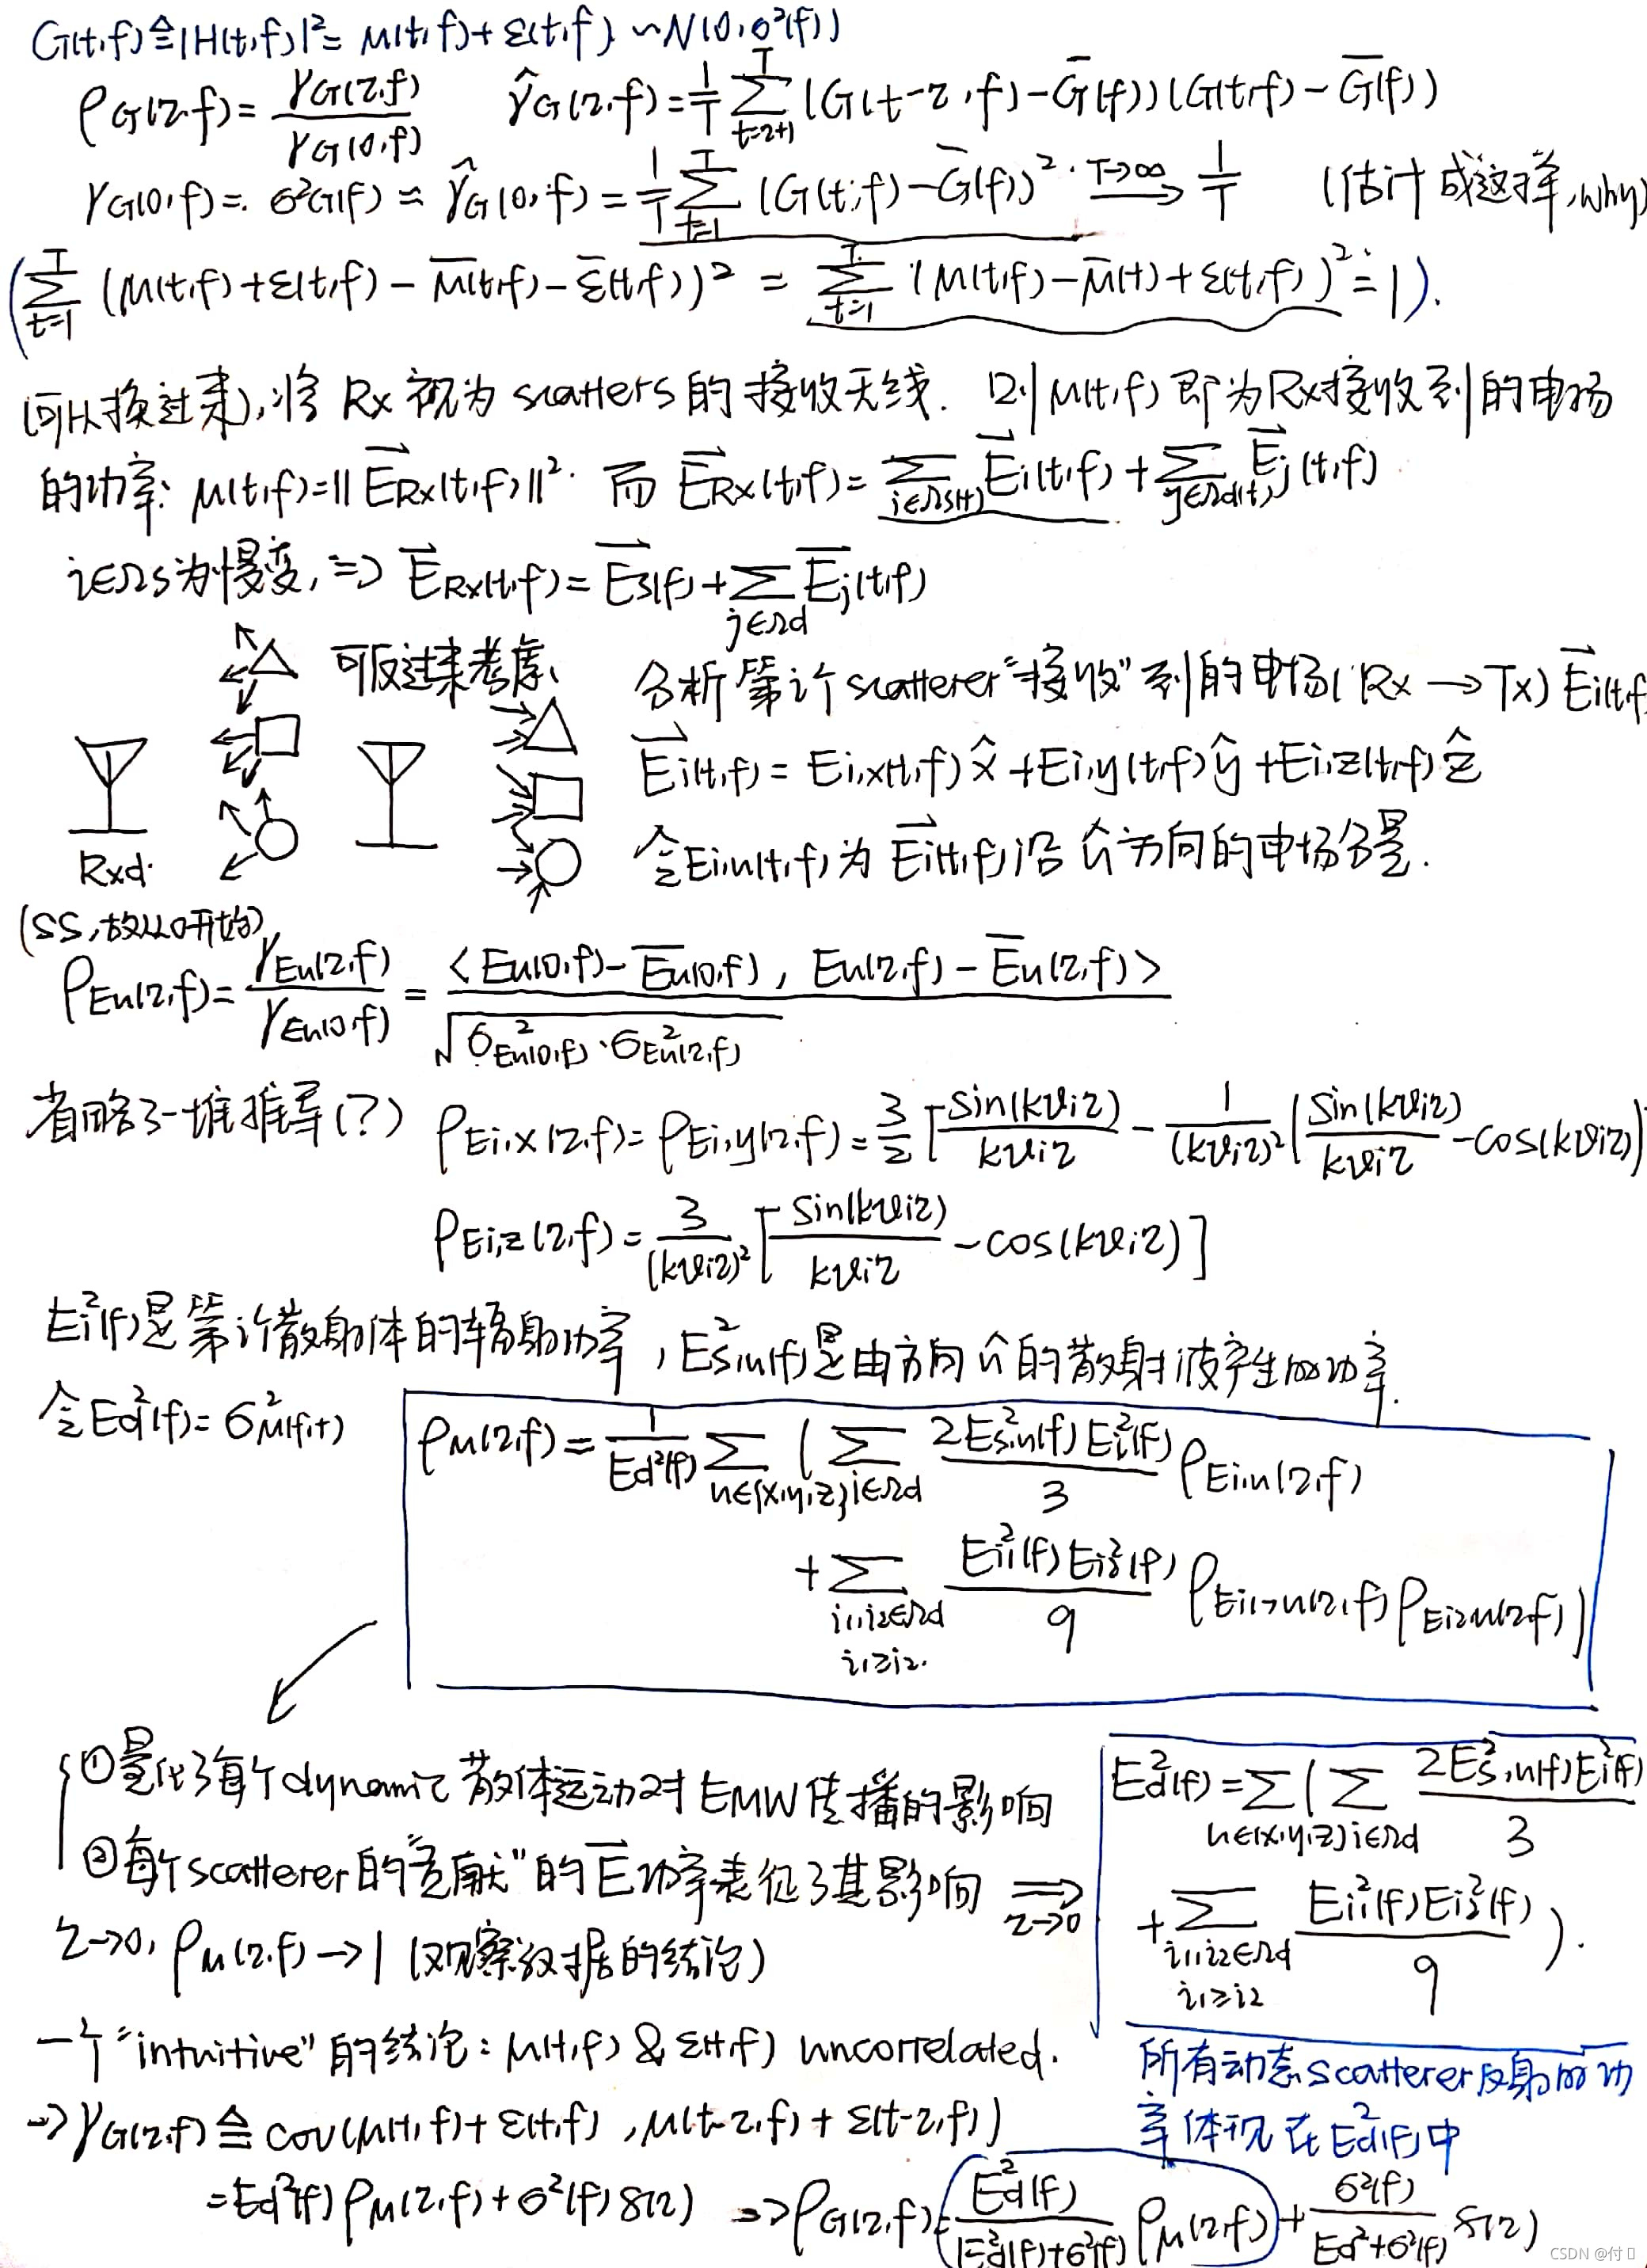 G(t,f)≜|H(t,f)|²= μ(t,f)+ε(t,f) ~N(0,σ²(f))
ρG(τ,f)= γG(τ,f)/γG(0,f)   γ̂G(τ,f)= 1/T ∑_{t=τ+1}^{T} (G(t-τ,f)-Ḡ(f))(G(t,f)-Ḡ(f))
γG(0,f)= σ²G(f) ≈ γ̂G(0,f)= 1/T ∑_{t=1}^{T} (G(t,f)-Ḡ(f))² —T→∞→ 1/T (估计成这样,why)
(∑_{t=1}^{T} (μ(t,f)+ε(t,f)-μ̄(t,f)-ε̄(t,f))² = ∑_{t=1}^{T} (μ(t,f)-μ̄(t)+ε(t,f))² = 1).
(可以换过来),将 Rx 视为 scatters 的接收天线. 则 μ(t,f) 即为Rx接收到的电场
的功率: μ(t,f)=||E⃗Rx(t,f)||². 而 E⃗Rx(t,f)= ∑_{i∈Ωs(t)} E⃗i(t,f) + ∑_{j∈Ωd(t)} E⃗j(t,f)
i∈Ωs为慢变, => E⃗Rx(t,f)= E⃗s(f)+ ∑_{j∈Ωd} E⃗j(t,f)
可反过来考虑、
分析第i个scatterer“接收”到的电场( Rx → Tx) E⃗i(t,f
E⃗i(t,f)= Ei,x(t,f) x̂ +Ei,y(t,f) ŷ +Ei,z(t,f) ẑ
令Ei,u(t,f)为 E⃗i(t,f)沿 û方向的电场分量.
Rxd.
(SS,故从0开始)
ρEu(τ,f)= γEu(τ,f)/γEu(0,f) = <Eu(0,f)-Ēu(0,f), Eu(τ,f)-Ēu(τ,f)> / √(σ²Eu(0,f)·σ²Eu(τ,f))
省略了一堆推导(?) ρEi,x(τ,f)= ρEi,y(τ,f)= 3/2 [sin(kviτ)/kviτ - 1/(kviτ)² (sin(kviτ)/kviτ -cos(kviτ)
ρEi,z(τ,f)= 3/(kviτ)² [sin(kviτ)/kviτ -cos(kviτ)]
Ei²(f)是第i个散射体的辐射功率, E²s,u(f)是由方向û的散射波产生的功率.
令Ed²(f)= σ²μ(f,t)
ρμ(τ,f)= 1/Ed²(f) ∑_{u∈{x,y,z}} (∑_{i∈Ωd} 2E²s,u(f)Ei²(f)/3 ρEi,u(τ,f)
+ ∑_{i1,i2∈Ωd i1≥i2.} Ei1²(f)Ei2²(f)/9 ρEi1,u(τ,f)ρEi2,u(τ,f))
①量化了每个dynamic 散体运动对EMW传播的影响
②每个scatterer的“贡献”的E⃗功率表征了其影响 =>τ→0
τ→0, ρμ(τ,f)→1 (观察数据的结论)
Ed²(f)= ∑_{u∈{x,y,z}} (∑_{i∈Ωd} 2E²s,u(f)Ei²(f)/3
+ ∑_{i1,i2∈Ωd i1≥i2} Ei1²(f)Ei2²(f)/9 ).
一个“intuitive”的结论: μ(t,f) & ε(t,f) uncorrelated.
所有动态scatterer反射的功
率体现在Ed²(f)中
=>γG(τ,f)≜ cov(μ(t,f)+ε(t,f), μ(t-τ,f)+ε(t-τ,f))
=Ed²(f)ρμ(τ,f)+σ²(f)δ(τ) =>ρG(τ,f)= Ed²(f)/(Ed²(f)+σ²(f)) ρμ(τ,f) + σ²(f)/(Ed²+σ²(f)) δ(τ)